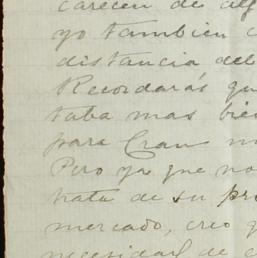 carecen de alg
yo tambien c
distancia del
Recordarás qu
taba mas bien
para Cran m
Pero ya que no
trata de su pro
mercado, creo q
necesidad de c